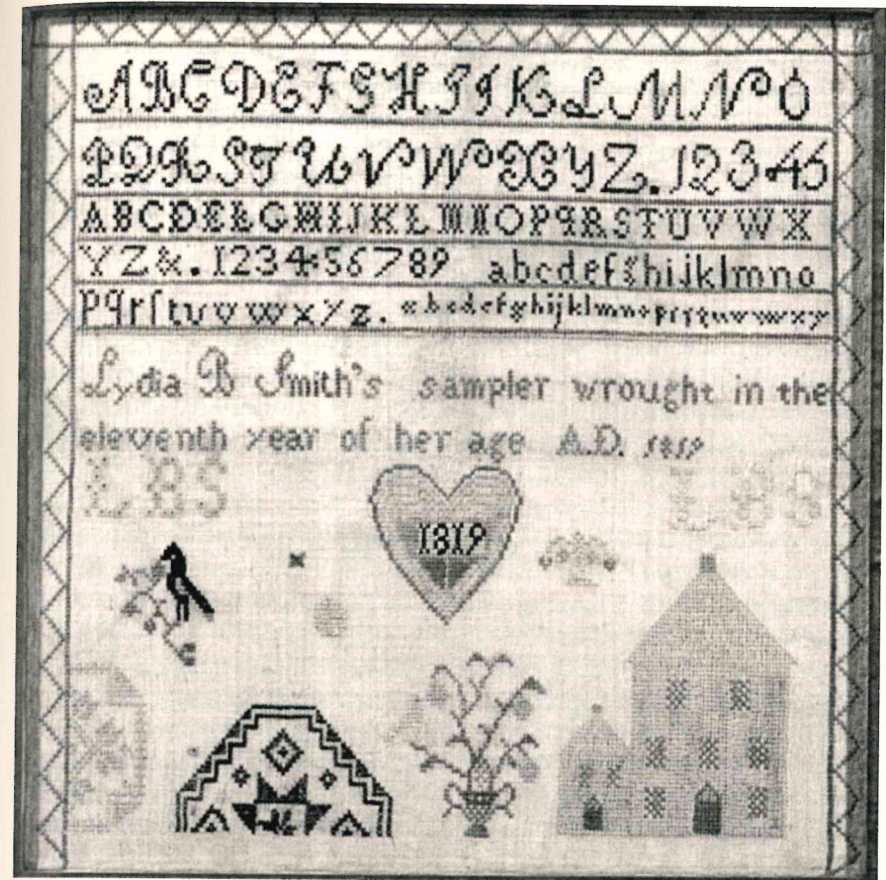 A B C D E F G H I J K L M N O
P Q R S T U V W X Y Z . 1 2 3 4 5
A B C D E F G H I J K L M N O P Q R S T U V W X
Y Z & . 1 2 3 4 5 6 7 8 9 a b c d e f g h i j k l m n o
p q r ſ t u v w x y z . a b c d e f g h i j k l m n o p r ſ t u v w x y
Lydia B Smith's sampler wrought in the
eleventh year of her age A.D. 1819
LBS LBS
1819